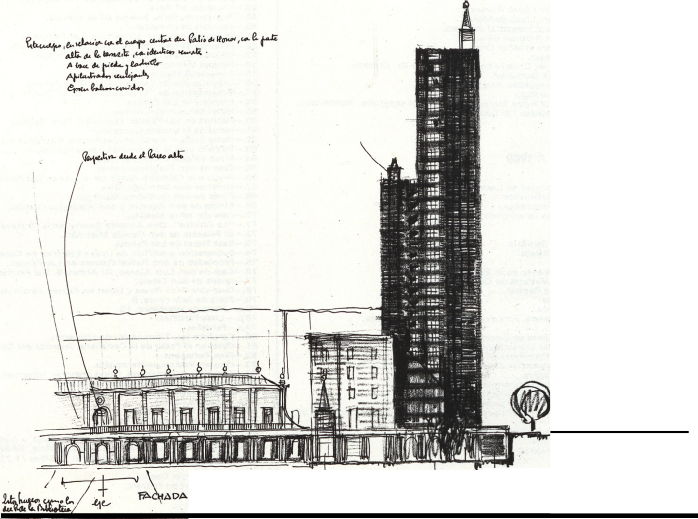 en relación con el cuerpo central del Patio de Honor, con la parte
alta de la con identico remate.
A base de piedra y ladrillo
Apilastrados semejantes
Gran balcon corrido
Perspectiva desde el Paseo alto
Estos huecos como los
de la Biblioteca
eje
FACHADA